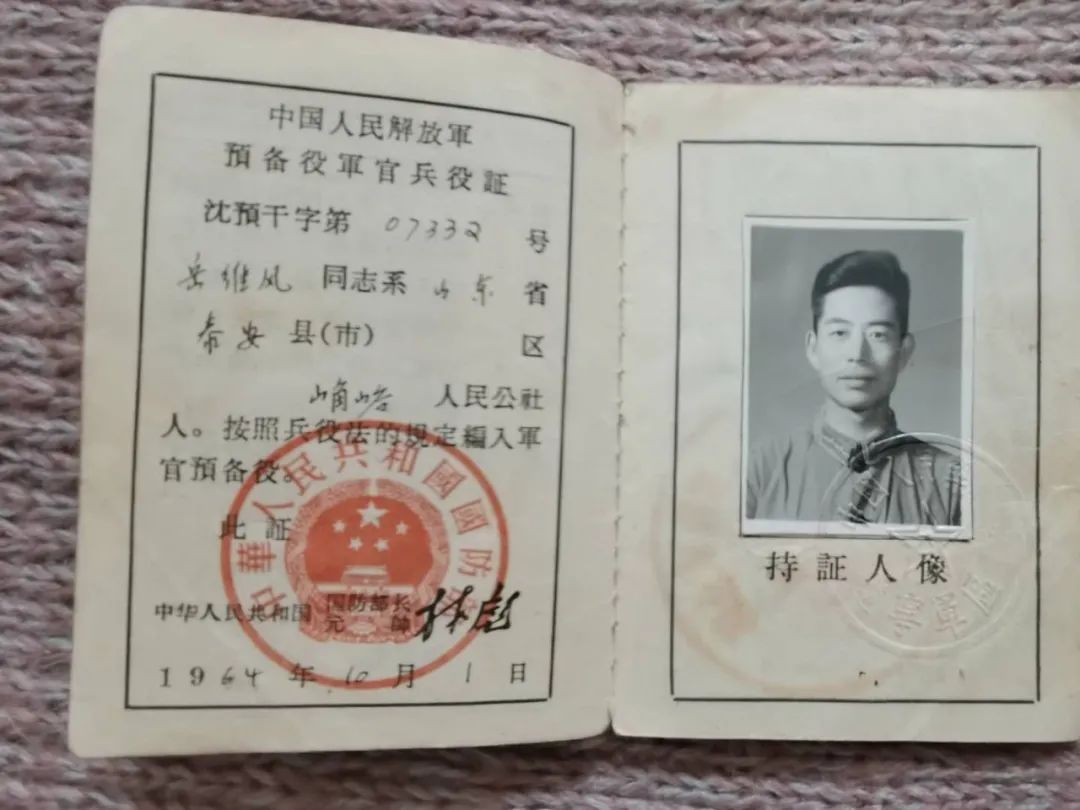 中国人民解放軍
預备役軍官兵役証
沈預干字第 07332 号
岳維风 同志系 山东 省
泰安 县(市) 区
崅峪 人民公社
人。按照兵役法的規定編入軍
官預备役。
此証
中华人民共和国 国防部长
元帥 林彪
1964 年 10 月 1 日
中華人民共和國國防部
持証人像
軍區